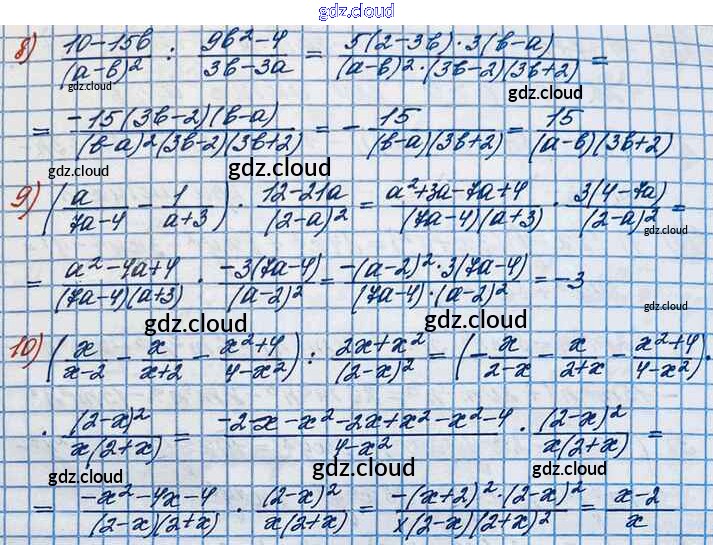 gdz.cloud
8) \frac{10-15b}{(a-b)^2} : \frac{9b^2-4}{3b-3a} = \frac{5(2-3b)·3(b-a)}{(a-b)^2·(3b-2)(3b+2)} =
gdz.cloud gdz.cloud
= \frac{-15(3b-2)(b-a)}{(b-a)^2(3b-2)(3b+2)} = -\frac{15}{(b-a)(3b+2)} = \frac{15}{(a-b)(3b+2)}
gdz.cloud gdz.cloud gdz.cloud
9) (\frac{a}{7a-4} - \frac{1}{a+3}) · \frac{12-21a}{(2-a)^2} = \frac{a^2+3a-7a+4}{(7a-4)(a+3)} · \frac{3(4-7a)}{(2-a)^2} =
gdz.cloud
= \frac{a^2-4a+4}{(7a-4)(a+3)} · \frac{-3(7a-4)}{(a-2)^2} = \frac{-(a-2)^2·3(7a-4)}{(7a-4)·(a-2)^2} = -3
gdz.cloud gdz.cloud gdz.cloud
10) (\frac{x}{x-2} - \frac{x}{x+2} - \frac{x^2+4}{4-x^2}) : \frac{2x+x^2}{(2-x)^2} = (-\frac{x}{2-x} - \frac{x}{2+x} - \frac{x^2+4}{4-x^2}) ·
gdz.cloud
· \frac{(2-x)^2}{x(2+x)} = \frac{-2-x-x^2-2x+x^2-x^2-4}{4-x^2} · \frac{(2-x)^2}{x(2+x)} =
gdz.cloud gdz.cloud gdz.cloud
= \frac{-x^2-4x-4}{(2-x)(2+x)} · \frac{(2-x)^2}{x(2+x)} = \frac{-(x+2)^2·(2-x)^2}{x(2-x)(2+x)^2} = \frac{x-2}{x}
gdz.cloud